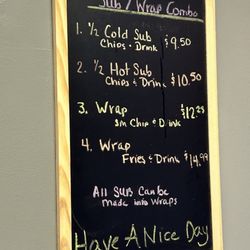 Sub / Wrap Combo
1. ½ Cold Sub $9.50
Chips + Drink
2. ½ Hot Sub
Chips + Drink $10.50
3. Wrap $12.25
Sm Chip + Drink
4. Wrap
Fries + Drink $14.99
All Subs Can be
Made into Wraps
Have A Nice Day